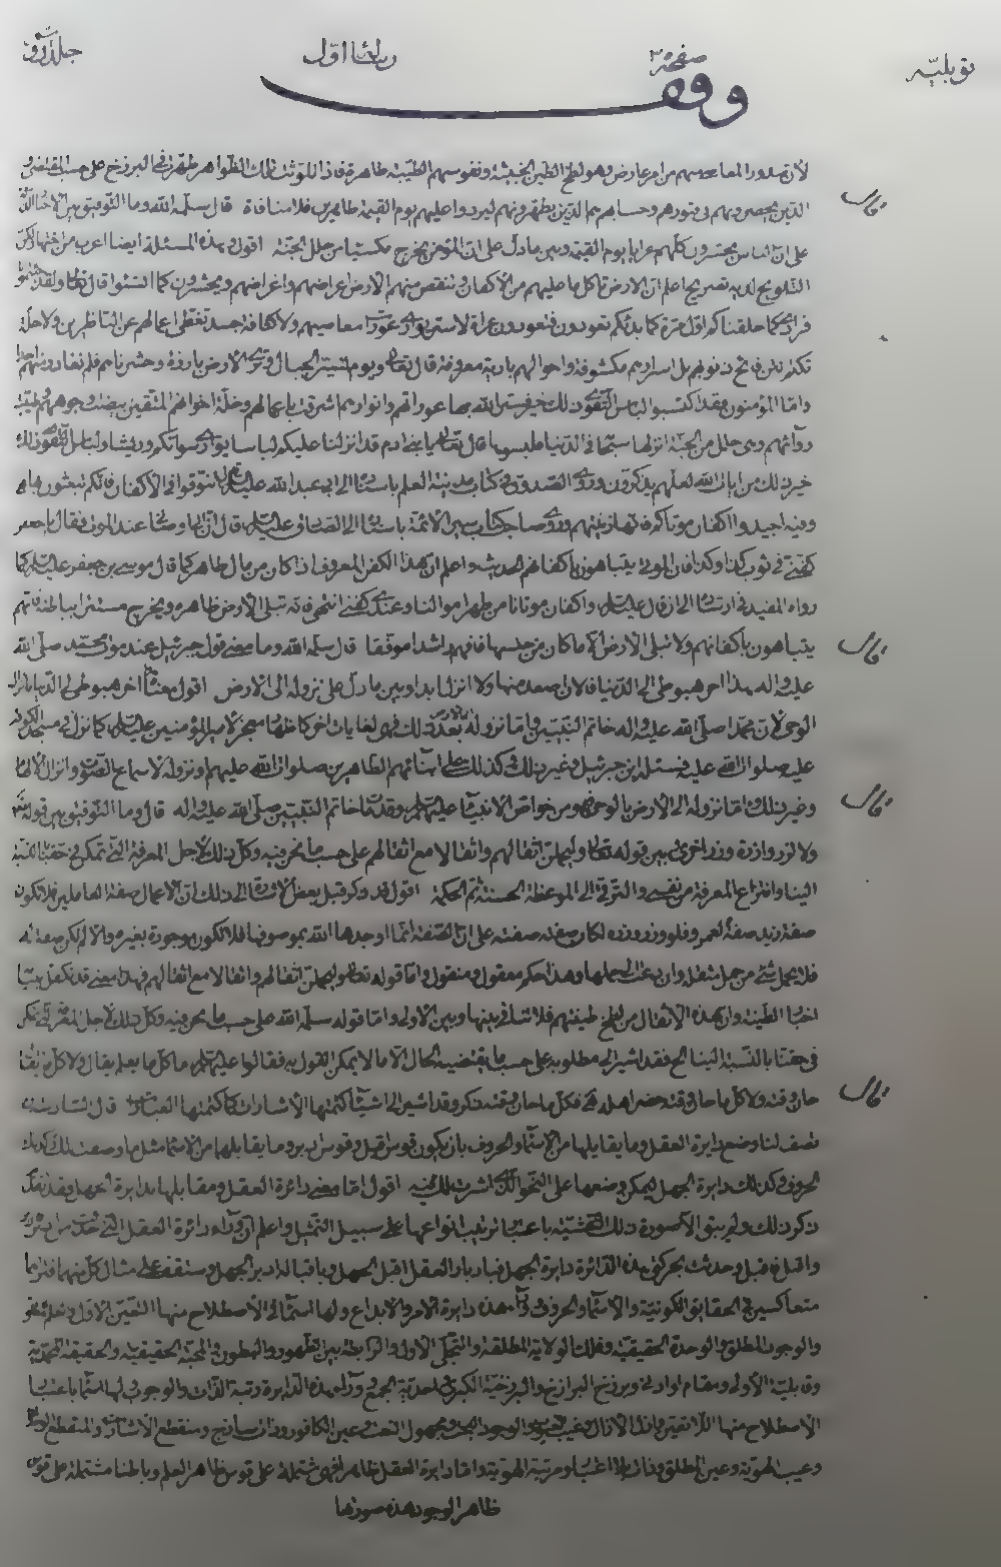 توبلیّه صفحه ۲ رسالهٔ اول جلد اول
وقف
لأن صدور المعاصی منهم من امر عارض وهو لطخ الطین الخبیثة ونفوسهم الطیبة طاهرة فاذا تلوثت تلک الظواهر طهرت فی البرزخ علی حسب المقتضی و
الذین یحضرونهم فی قبورهم وحسابهم هم الذین یطهرونهم لیردوا علیهم یوم القیمة طاهرین فلا منافاة قال سلمه الله وما التوفیق بین الاخبار الدالة
قال
علی ان الناس یحشرون کلهم عرایا یوم القیمة وبین ما دل علی ان المؤمن یخرج مکتسیا من حلل الجنة اقول وهذه المسئلة ایضا اعرب من اختها ولکن
التلویح لدیه تصریح اعلم ان الارض تاکل ما علیهم من الأکفان وتنقص منهم الارض اعراضهم واغراضهم ویحشرون کما انشئوا قال تعالی ولقد جئتمونا
فرادی کما خلقناکم اول مرة کما بدئکم تعودون فتعودون عراة لا ستر یواری عورات معاصیهم ولا کثافة جسد تغطی اعمالهم عن الناظرین ولا حلة
تکنّهم عن فاتح ذنوبهم بل اسرارهم مکشوفة واحوالهم بادیة معروفة قال تعالی ویوم نسیر الجبال وتری الارض بارزة وحشرناهم فلم نغادر منهم احدا
وامّا المؤمنون فقد اکتسبوا لباس التقوی ذلک خیر فستر الله بها عوراتهم وانوارهم اشرقت باعمالهم وحلة اخوانهم المتقین بیضت وجوههم وطیبت
روائحهم وهی حلل من الجنة انزلها سبحانه فی الدنیا فلبسوها قال تعالی یا بنی ادم قد انزلنا علیکم لباسا یواری سواتکم وریشا ولباس التقوی ذلک
خیر ذلک من ایات الله لعلهم یذکرون وروی الصدوق فی کتاب مدینة العلم باسناده الی ابی عبد الله علیه السلام تنوقوا فی الاکفان فانکم تبعثون بها
وفیه اجیدوا اکفان موتاکم فانها زینتهم وروی صاحب کتاب سیر الائمة باسناده الی الصادق علیه السلام قال ان ابی اوصانی عند الموت فقال یا جعفر
کفنی فی ثوب کذا وکذا فان الموتی یتباهون باکفانهم الحدیث واعلم ان هذا الکفن المعروف اذا کان من مال طاهر کما قال موسی بن جعفر علیه السلام کما
رواه المفید فی ارشاده الی ان قال علیه السلام واکفان موتانا من طهر اموالنا وعندی کفنی انتهی فانه تبلی الارض ظاهره ویخرج مستترا بباطنه فانهم
یتباهون باکفانهم ولا تبلی الارض الا ما کان من جنسها فافهم راشدا موفقا قال سلمه الله وما معنی قول جبرئیل عند موت محمد صلی الله
قال
علیه واله هذا اخر هبوطی الی الدنیا فالان اصعد منها ولا انزل ابدا وبین ما دل علی نزوله الی الارض اقول معنی اخر هبوطی الی الدنیا بانزال
الوحی لان محمدا صلی الله علیه واله خاتم النبیین واما نزوله بعد ذلک فهو لغایات اخر کاظهار معجز لامیر المؤمنین علیه السلام کما نزل فی مسجد الکوفة
علیه صلوات الله علیه فسئله این جبرئیل وغیر ذلک وکذلک علی ابنائهم الطاهرین صلوات الله علیهم ونزوله لاسماع الصوت وانزال
وغیر ذلک واما نزوله الی الارض بالوحی فهو من خواص الانبیاء علیهم السلام وقد کان خاتم النبیین صلی الله علیه واله قال وما التوفیق بین قوله تعالی
قال
ولا تزر وازرة وزر اخری وبین قوله تعالی ولیحملن اثقالهم واثقالا مع اثقالهم علی حسب ما نحن فیه وکل ذلک لاجل المعرفة التی تمکن فی حقنا بالنسبة
الینا وانتزاع المعرفة من نفسی والترقی الی الموعظة الحسنة ثم الحکمة اقول قد ذکر قبل بعض الاشارة الی ذلک ان الاعمال صفة العاملین فلا تکون
صفة زید صفة لعمرو فلو وزر وزره لکان صفته صفته علی ان الصفة انما اوجدها الله بموصوفها فلا تکون موجودة بغیره والا لم تکن صفة له
فلا یحمل شیء من حمل مثقلة وان دعت الی حملها وهذا حکم معقول ومنقول واما قوله تعالی ولیحملن اثقالهم واثقالا مع اثقالهم فهذا معنی قد تکفل ببیانه
اخبار الطینة وان هذه الاثقال من لطخ طینتهم فلا تنافی بینها وبین الاولی واما قوله سلمه الله علی حسب ما نحن فیه وکل ذلک لاجل المعرفة التی تمکن
فی حقنا بالنسبة الینا الخ فقد اشیر الی مطلوبه علی حسب ما یقتضیه الحال الا ما لا یمکن القول به فقد قالوا علیهم السلام ما کل ما یعلم یقال ولا کل ما یقال
حان وقته ولا کل ما حان وقته حضر اهله فکل ما حان وقته ذکر وقد اشیر الی اشیاء کتمتها الاشارات کما کتمتها العبارات قال
قال
تصف لنا وضع دایرة العقل وما یقابلها من الاسماء والحروف بان یکون قوس اقبل وقوس ادبر وما یقابلها من الاسماء مثل ما وصفت لک کذلک
الحروف وکذلک دایرة الجهل لیمکن وضعها علی النحو الذی اشرت لک فیه اقول اما معنی دائرة العقل ومقابلها بدایرة الجهل فقد تقدم
ذکر ذلک ولم یبق الا صورة ذلک التحشیة باعتبار ترتیب انواعها علی سبیل التمثیل واعلم ان وراء دائرة العقل التی حدثت من ادباره
واقباله قبل وحدثت بحرکتی هذه الدائرة دایرة الجهل فبادبار العقل اقبل الجهل وباقباله ادبر الجهل وستقف علی مثال کل منهما فترهما
متعاکسین فی الحقایق الکونیة والاسماء والحروف وراء هذه دایرة الامر والابداع ولها اسماء فی الاصطلاح منها التعین الاول
والوجود المطلق والوحدة الحقیقیة وفلک الولایة المطلقة والتجلی الاول والرابطة بین الظهور والبطون والمحبة الحقیقیة والحقیقة المحمدیة
وقابلیة الاولی ومقام او ادنی وبرزخ البرازخ والبرزخیة الکبری واحدیة الجمع ووراء هذه الدایرة رتبة الذات والوجوب ولها اسماء باعتبار
الاصطلاح منها اللاتعین وازل الازال وغیب الغیوب والوجود البحت ومجهول النعت وعین الکافور وذات ساذج ومنقطع الاشارات والمنقطع
وغیب الهویة وعین المطلق وذات بلا اعتبار ومرتبة الهویة واما دایرة العقل ظاهرا فهی مشتملة علی قوس ظاهر العلم وباطنا مشتملة علی قوس
ظاهر الوجود هذه صورتها